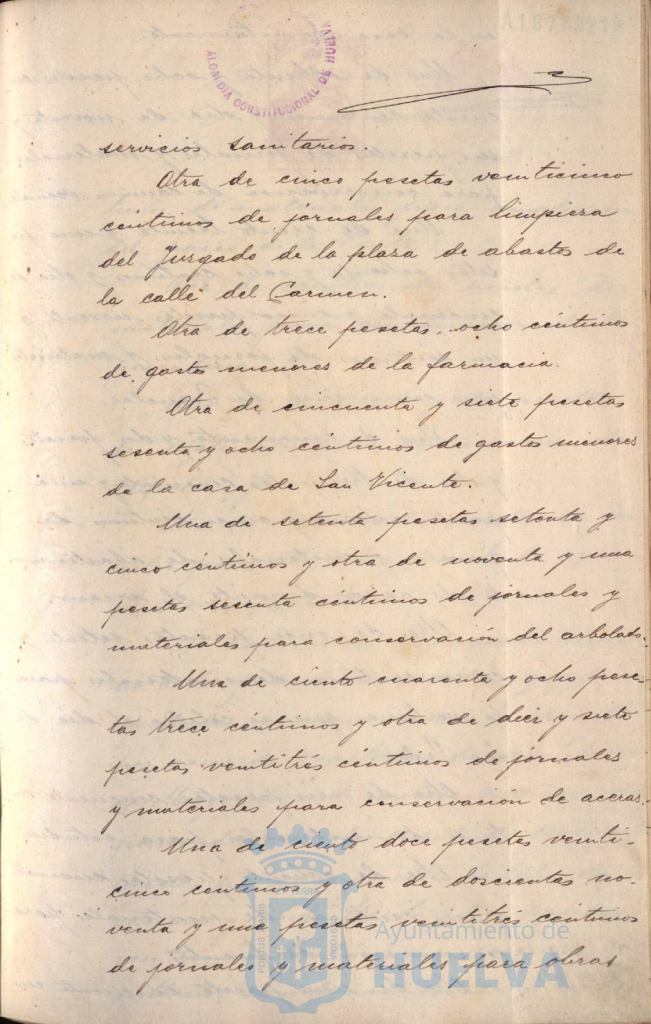 ALCALDIA CONSTITUCIONAL DE HUELVA
servicios sanitarios.
Otra de cinco pesetas veinticinco
céntimos de jornales para limpiera
del Juzgado de la plaza de abastos de
la calle del Carmen.
Otra de trece pesetas, ocho céntimos
de gastos menores de la farmacia.
Otra de cincuenta y siete pesetas
sesenta y ocho céntimos de gastos menores
de la casa de San Vicente.
Una de setenta pesetas setenta y
cinco céntimos y otra de noventa y una
pesetas sesenta céntimos de jornales y
materiales para conservación del arbolado.
Una de ciento cuarenta y ocho pese-
tas trece céntimos y otra de diez y siete
pesetas veintitrés céntimos de jornales
y materiales para conservación de aceras.
Una de ciento doce pesetas veinti-
cinco céntimos y otra de doscientas no-
venta y una pesetas veintitrés céntimos
de jornales y materiales para obras
Ayuntamiento de
HUELVA